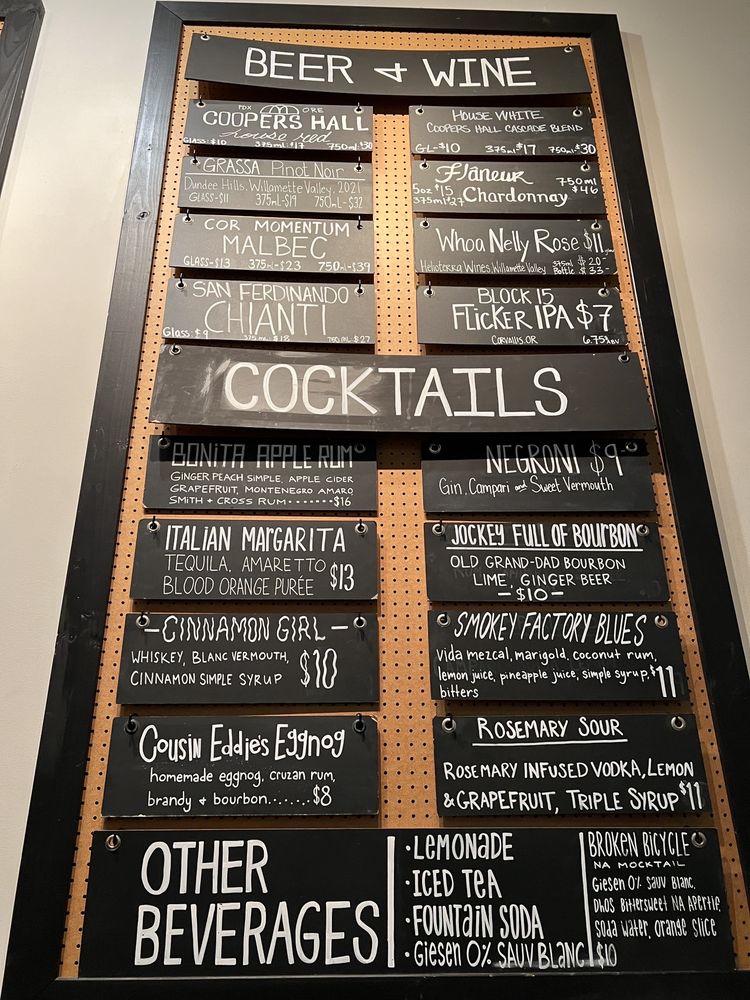 BEER & WINE
PDX ORE
COOPERS HALL
house red
GLASS: $10 375ml $17 750ml $30
GRASSA Pinot Noir
Dundee Hills, Willamette Valley, 2021
GLASS-$11 375ml-$19 750mL-$32
COR MOMENTUM
MALBEC
GLASS-$13 375ml-$23 750ml-$39
SAN FERDINANDO
CHIANTI
Glass: $9 375ml $18 750ml $27
HOUSE WHITE
COOPERS HALL CASCADE BLEND
GL-$10 375ml $17 750ml $30
Flâneur
Chardonnay
5oz $15
375ml $27
750ml
$46
Whoa Nelly Rose $11
Helioterra Wines, Willamette Valley 375ml $20-
Bottle $33-
BLOCK 15
FLICKER IPA $7
CORVALLIS, OR 6.75% ABV
COCKTAILS
BONITA APPLE RUM
GINGER PEACH SIMPLE, APPLE CIDER
GRAPEFRUIT, MONTENEGRO AMARO
SMITH + CROSS RUM.......$16
ITALIAN MARGARITA
TEQUILA, AMARETTO
BLOOD ORANGE PURÉE $13
-CINNAMON GIRL-
WHISKEY, BLANC VERMOUTH,
CINNAMON SIMPLE SYRUP $10
Cousin Eddie's Eggnog
homemade eggnog, cruzan rum,
brandy & bourbon.......$8
NEGRONI $9
Gin, Campari and Sweet Vermouth
JOCKEY FULL OF BOURBON
OLD GRAND-DAD BOURBON
LIME, GINGER BEER
-$10-
SMOKEY FACTORY BLUES
vida mezcal, marigold, coconut rum,
lemon juice, pineapple juice, simple syrup, $11
bitters
ROSEMARY SOUR
ROSEMARY INFUSED VODKA, LEMON
& GRAPEFRUIT, TRIPLE SYRUP $11
OTHER
BEVERAGES
•LEMONADE
•ICED TEA
•FOUNTAIN SODA
•Giesen 0% SAUV BLANC
BROKEN BICYCLE
NA MOCKTAIL
Giesen 0% sauv blanc,
DHOS Bittersweet NA Apertif,
soda water, orange slice
$10